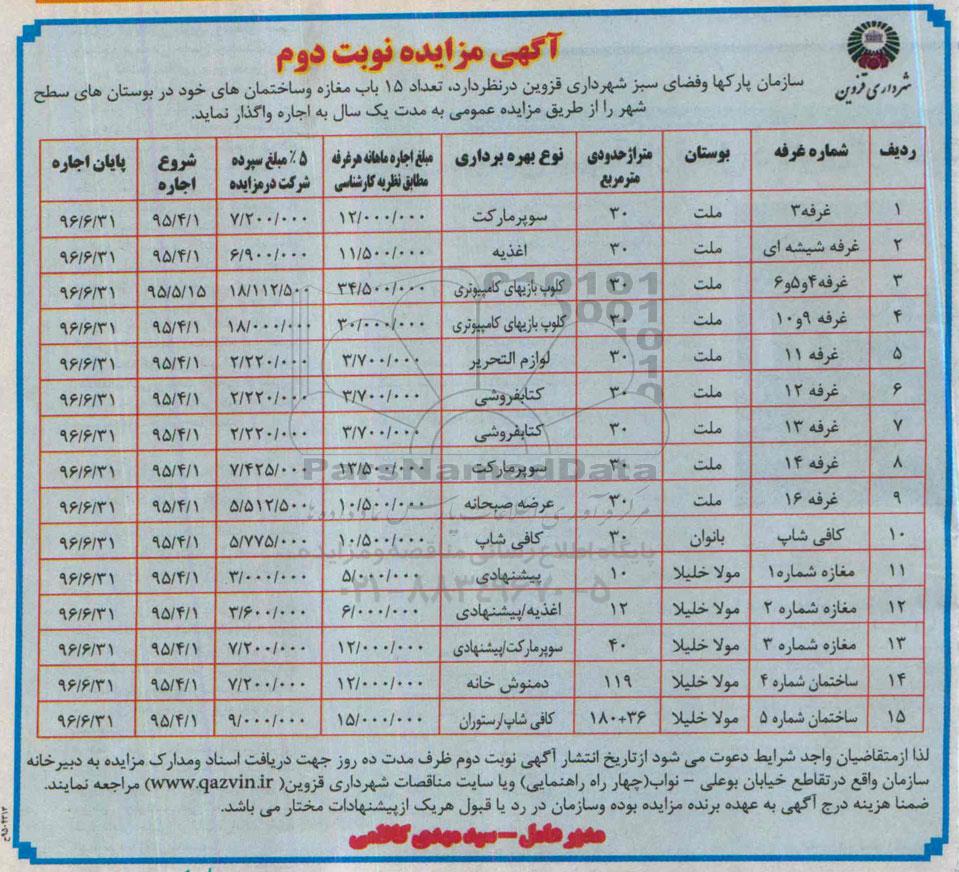 آگهی مزایده نوبت دوم
شهرداری قزوین
سازمان پارکها وفضای سبز شهرداری قزوین درنظردارد، تعداد ۱۵ باب مغازه وساختمان های خود در بوستان های سطح
شهر را از طریق مزایده عمومی به مدت یک سال به اجاره واگذار نماید.
ردیف شماره غرفه بوستان متراژحدودی مترمربع نوع بهره برداری مبلغ اجاره ماهانه هرغرفه مطابق نظریه کارشناسی ۵٪ مبلغ سپرده شرکت درمزایده شروع اجاره پایان اجاره
۱ غرفه۳ ملت ۳۰ سوپرمارکت ۱۲/۰۰۰/۰۰۰ ۷/۲۰۰/۰۰۰ ۹۵/۴/۱ ۹۶/۶/۳۱
۲ غرفه شیشه ای ملت ۳۰ اغذیه ۱۱/۵۰۰/۰۰۰ ۶/۹۰۰/۰۰۰ ۹۵/۴/۱ ۹۶/۶/۳۱
۳ غرفه۴و۵و۶ ملت ۳۰ کلوپ بازیهای کامپیوتری ۳۴/۵۰۰/۰۰۰ ۱۸/۱۱۲/۵۰۰ ۹۵/۵/۱۵ ۹۶/۶/۳۱
۴ غرفه ۹و۱۰ ملت ۳۰ کلوپ بازیهای کامپیوتری ۳۰/۰۰۰/۰۰۰ ۱۸/۰۰۰/۰۰۰ ۹۵/۴/۱ ۹۶/۶/۳۱
۵ غرفه ۱۱ ملت ۳۰ لوازم التحریر ۳/۷۰۰/۰۰۰ ۲/۲۲۰/۰۰۰ ۹۵/۴/۱ ۹۶/۶/۳۱
۶ غرفه ۱۲ ملت ۳۰ کتابفروشی ۳/۷۰۰/۰۰۰ ۲/۲۲۰/۰۰۰ ۹۵/۴/۱ ۹۶/۶/۳۱
۷ غرفه ۱۳ ملت ۳۰ کتابفروشی ۳/۷۰۰/۰۰۰ ۲/۲۲۰/۰۰۰ ۹۵/۴/۱ ۹۶/۶/۳۱
۸ غرفه ۱۴ ملت ۳۰ سوپرمارکت ۱۳/۵۰۰/۰۰۰ ۷/۴۲۵/۰۰۰ ۹۵/۴/۱ ۹۶/۶/۳۱
۹ غرفه ۱۶ ملت ۳۰ عرضه صبحانه ۱۰/۵۰۰/۰۰۰ ۵/۵۱۲/۵۰۰ ۹۵/۴/۱ ۹۶/۶/۳۱
۱۰ کافی شاپ بانوان ۳۰ کافی شاپ ۱۰/۵۰۰/۰۰۰ ۵/۷۷۵/۰۰۰ ۹۵/۴/۱ ۹۶/۶/۳۱
۱۱ مغازه شماره۱ مولا خلیلا ۱۰ پیشنهادی ۵/۰۰۰/۰۰۰ ۳/۰۰۰/۰۰۰ ۹۵/۴/۱ ۹۶/۶/۳۱
۱۲ مغازه شماره ۲ مولا خلیلا ۱۲ اغذیه/پیشنهادی ۶/۰۰۰/۰۰۰ ۳/۶۰۰/۰۰۰ ۹۵/۴/۱ ۹۶/۶/۳۱
۱۳ مغازه شماره ۳ مولا خلیلا ۴۰ سوپرمارکت/پیشنهادی ۱۲/۰۰۰/۰۰۰ ۷/۲۰۰/۰۰۰ ۹۵/۴/۱ ۹۶/۶/۳۱
۱۴ ساختمان شماره ۴ مولا خلیلا ۱۱۹ دمنوش خانه ۱۲/۰۰۰/۰۰۰ ۷/۲۰۰/۰۰۰ ۹۵/۴/۱ ۹۶/۶/۳۱
۱۵ ساختمان شماره ۵ مولا خلیلا ۱۸۰+۳۶ کافی شاپ/رستوران ۱۵/۰۰۰/۰۰۰ ۹/۰۰۰/۰۰۰ ۹۵/۴/۱ ۹۶/۶/۳۱
ParsNamadData
پایگاه اطلاع رسانی مناقصه و مزایده
۰۲۱-۸۸۳۴۹۶۷۰-۵
لذا ازمتقاضیان واجد شرایط دعوت می شود ازتاریخ انتشار آگهی نوبت دوم ظرف مدت ده روز جهت دریافت اسناد ومدارک مزایده به دبیرخانه
سازمان واقع درتقاطع خیابان بوعلی – نواب(چهار راه راهنمایی) ویا سایت مناقصات شهرداری قزوین( www.qazvin.ir) مراجعه نمایند.
ضمنا هزینه درج آگهی به عهده برنده مزایده بوده وسازمان در رد یا قبول هریک ازپیشنهادات مختار می باشد.
مدیر عامل – سید مهدی کاظمی